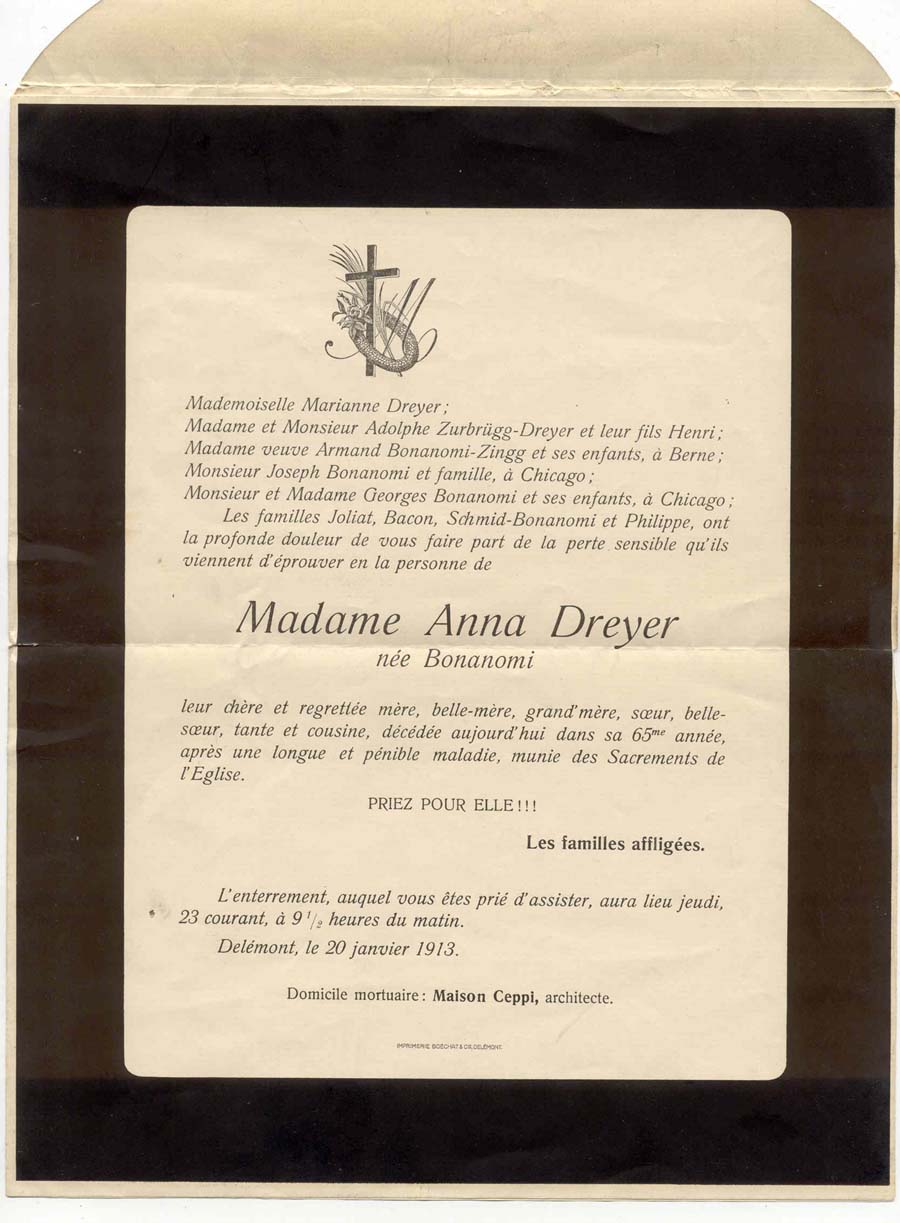 Mademoiselle Marianne Dreyer;
Madame et Monsieur Adolphe Zurbrügg-Dreyer et leur fils Henri;
Madame veuve Armand Bonanomi-Zingg et ses enfants, à Berne;
Monsieur Joseph Bonanomi et famille, à Chicago;
Monsieur et Madame Georges Bonanomi et ses enfants, à Chicago;
Les familles Joliat, Bacon, Schmid-Bonanomi et Philippe, ont
la profonde douleur de vous faire part de la perte sensible qu'ils
viennent d'éprouver en la personne de
Madame Anna Dreyer
née Bonanomi
leur chère et regrettée mère, belle-mère, grand'mère, sœur, belle-
sœur, tante et cousine, décédée aujourd'hui dans sa 65me année,
après une longue et pénible maladie, munie des Sacrements de
l'Eglise.
PRIEZ POUR ELLE!!!
Les familles affligées.
L'enterrement, auquel vous êtes prié d'assister, aura lieu jeudi,
23 courant, à 9 1/2 heures du matin.
Delémont, le 20 janvier 1913.
Domicile mortuaire: Maison Ceppi, architecte.
IMPRIMERIE BOÉCHAT & CIE, DELÉMONT.